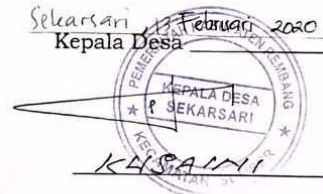 Sekarsari, 13 Februari 2020
Kepala Desa
PEMERINTAH KABUPATEN REMBANG
KEPALA DESA
SEKARSARI
KECAMATAN
KUSANI